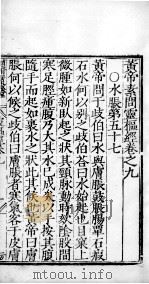 黃帝素問靈樞經卷之九
○水脹第五十七
黃帝問于歧伯曰水與膚脹鼓脹腸覃石瘕
石水何以別之歧伯答曰水始起也目窠上
微腫如新臥起之狀其頸脈動時欬陰股間
寒足脛瘇腹乃大其水已成矣以手按其腹
隨手而起如裹水之狀此其候也黃帝曰膚
脹何以候之歧伯曰膚脹者寒氣客于皮膚
www.mtoou.info